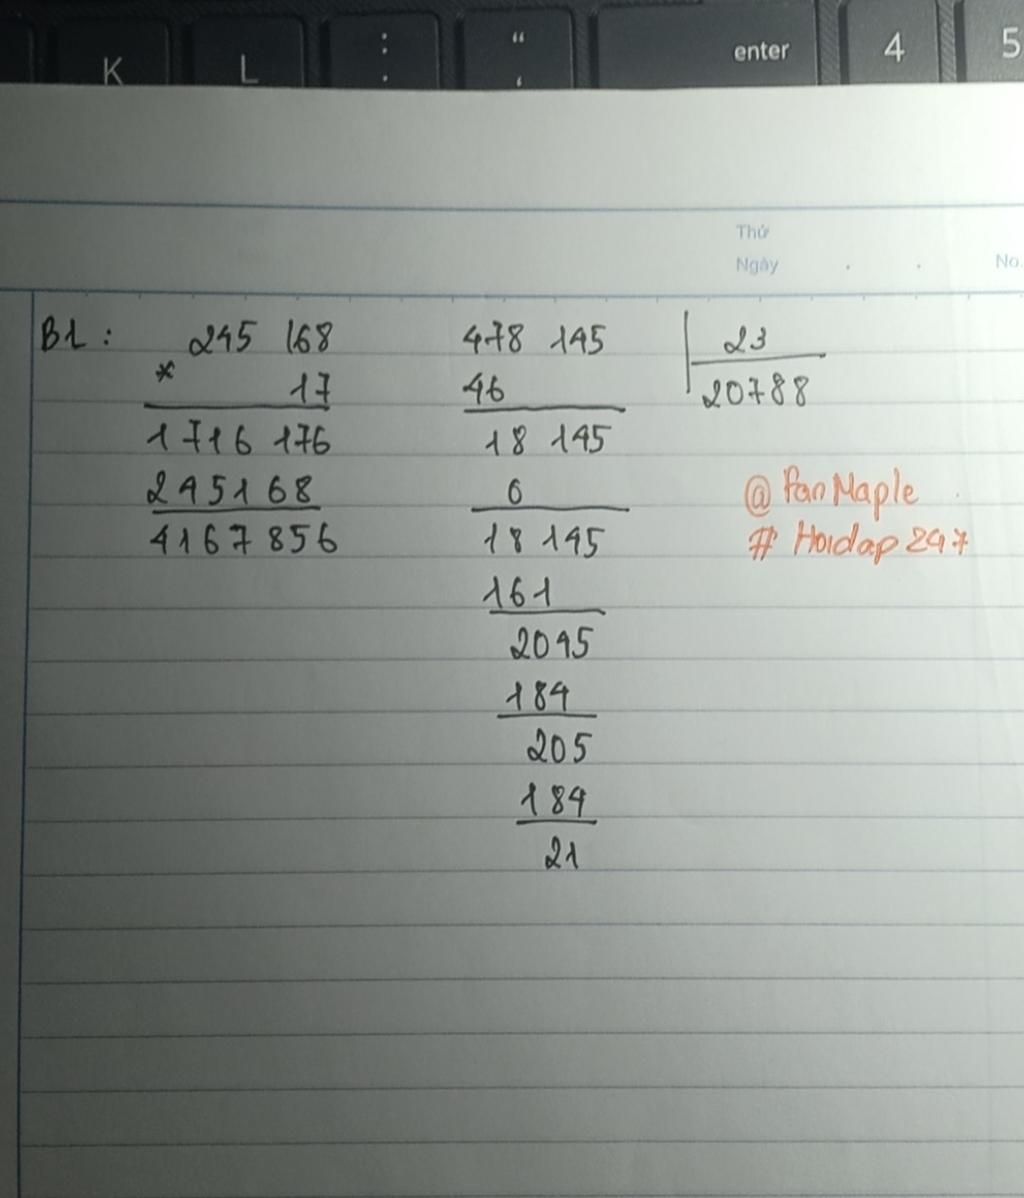 K L : ; “ ‘ enter 4 5
Thứ
Ngày . . No.
B1: 245 168 478 145 23
* 17 46 20788
1 716 176 18 145
245168 0 @ PanMaple
4167 856 18 145 # Hoidap247
161
2045
184
205
184
21